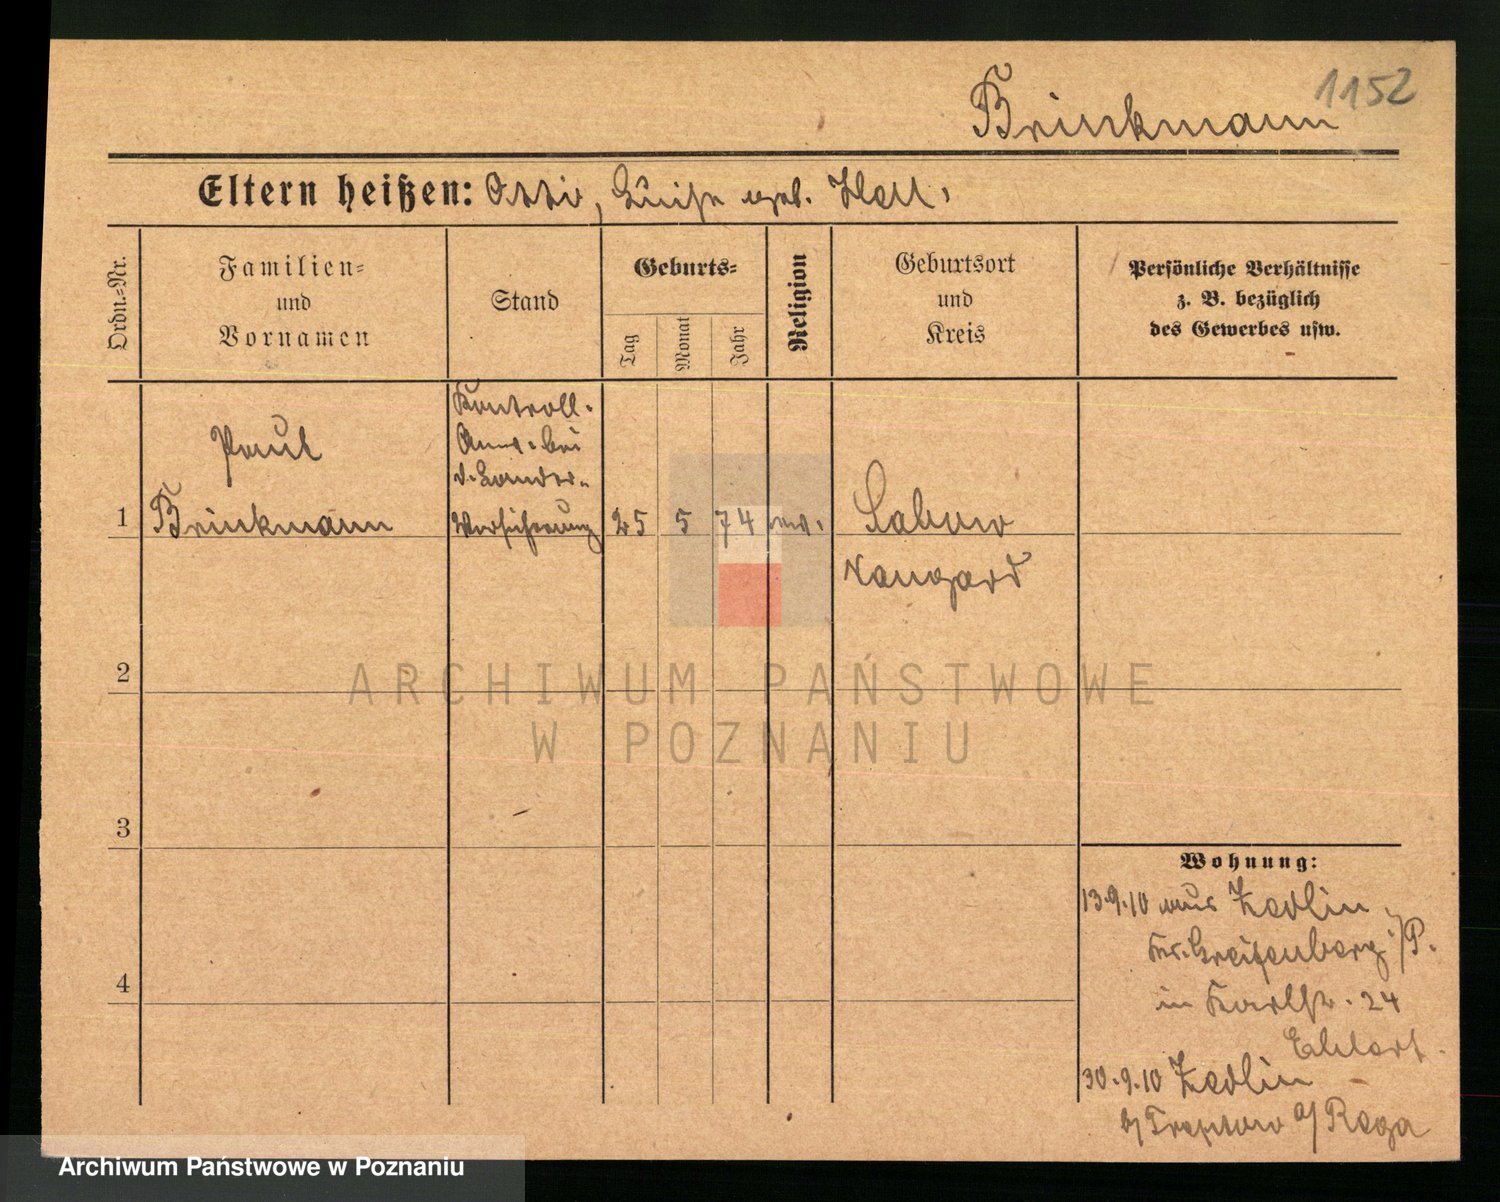 1152
Brinkmann
Eltern heißen: Otto, Luise geb. Hell.
Ordn.-Nr.
Familien-
und
Vornamen
Stand
Geburts-
Tag
Monat
Jahr
Religion
Geburtsort
und
Kreis
Persönliche Verhältnisse
z. B. bezüglich
des Gewerbes usw.
Kontroll-
Paul
Anw. bei
d. Landes-
1 Brinkmann Versicherung 25 5 74 ev. Labuhn
Naugard
2
ARCHIWUM PAŃSTWOWE
W POZNANIU
3
Wohnung:
13.9.10 aus Zedlin
Kr. Greifenberg i/P.
4
in Karlstr. 24
Ehlert.
30.9.10 Zedlin
b/ Treptow a/ Rega
Archiwum Państwowe w Poznaniu